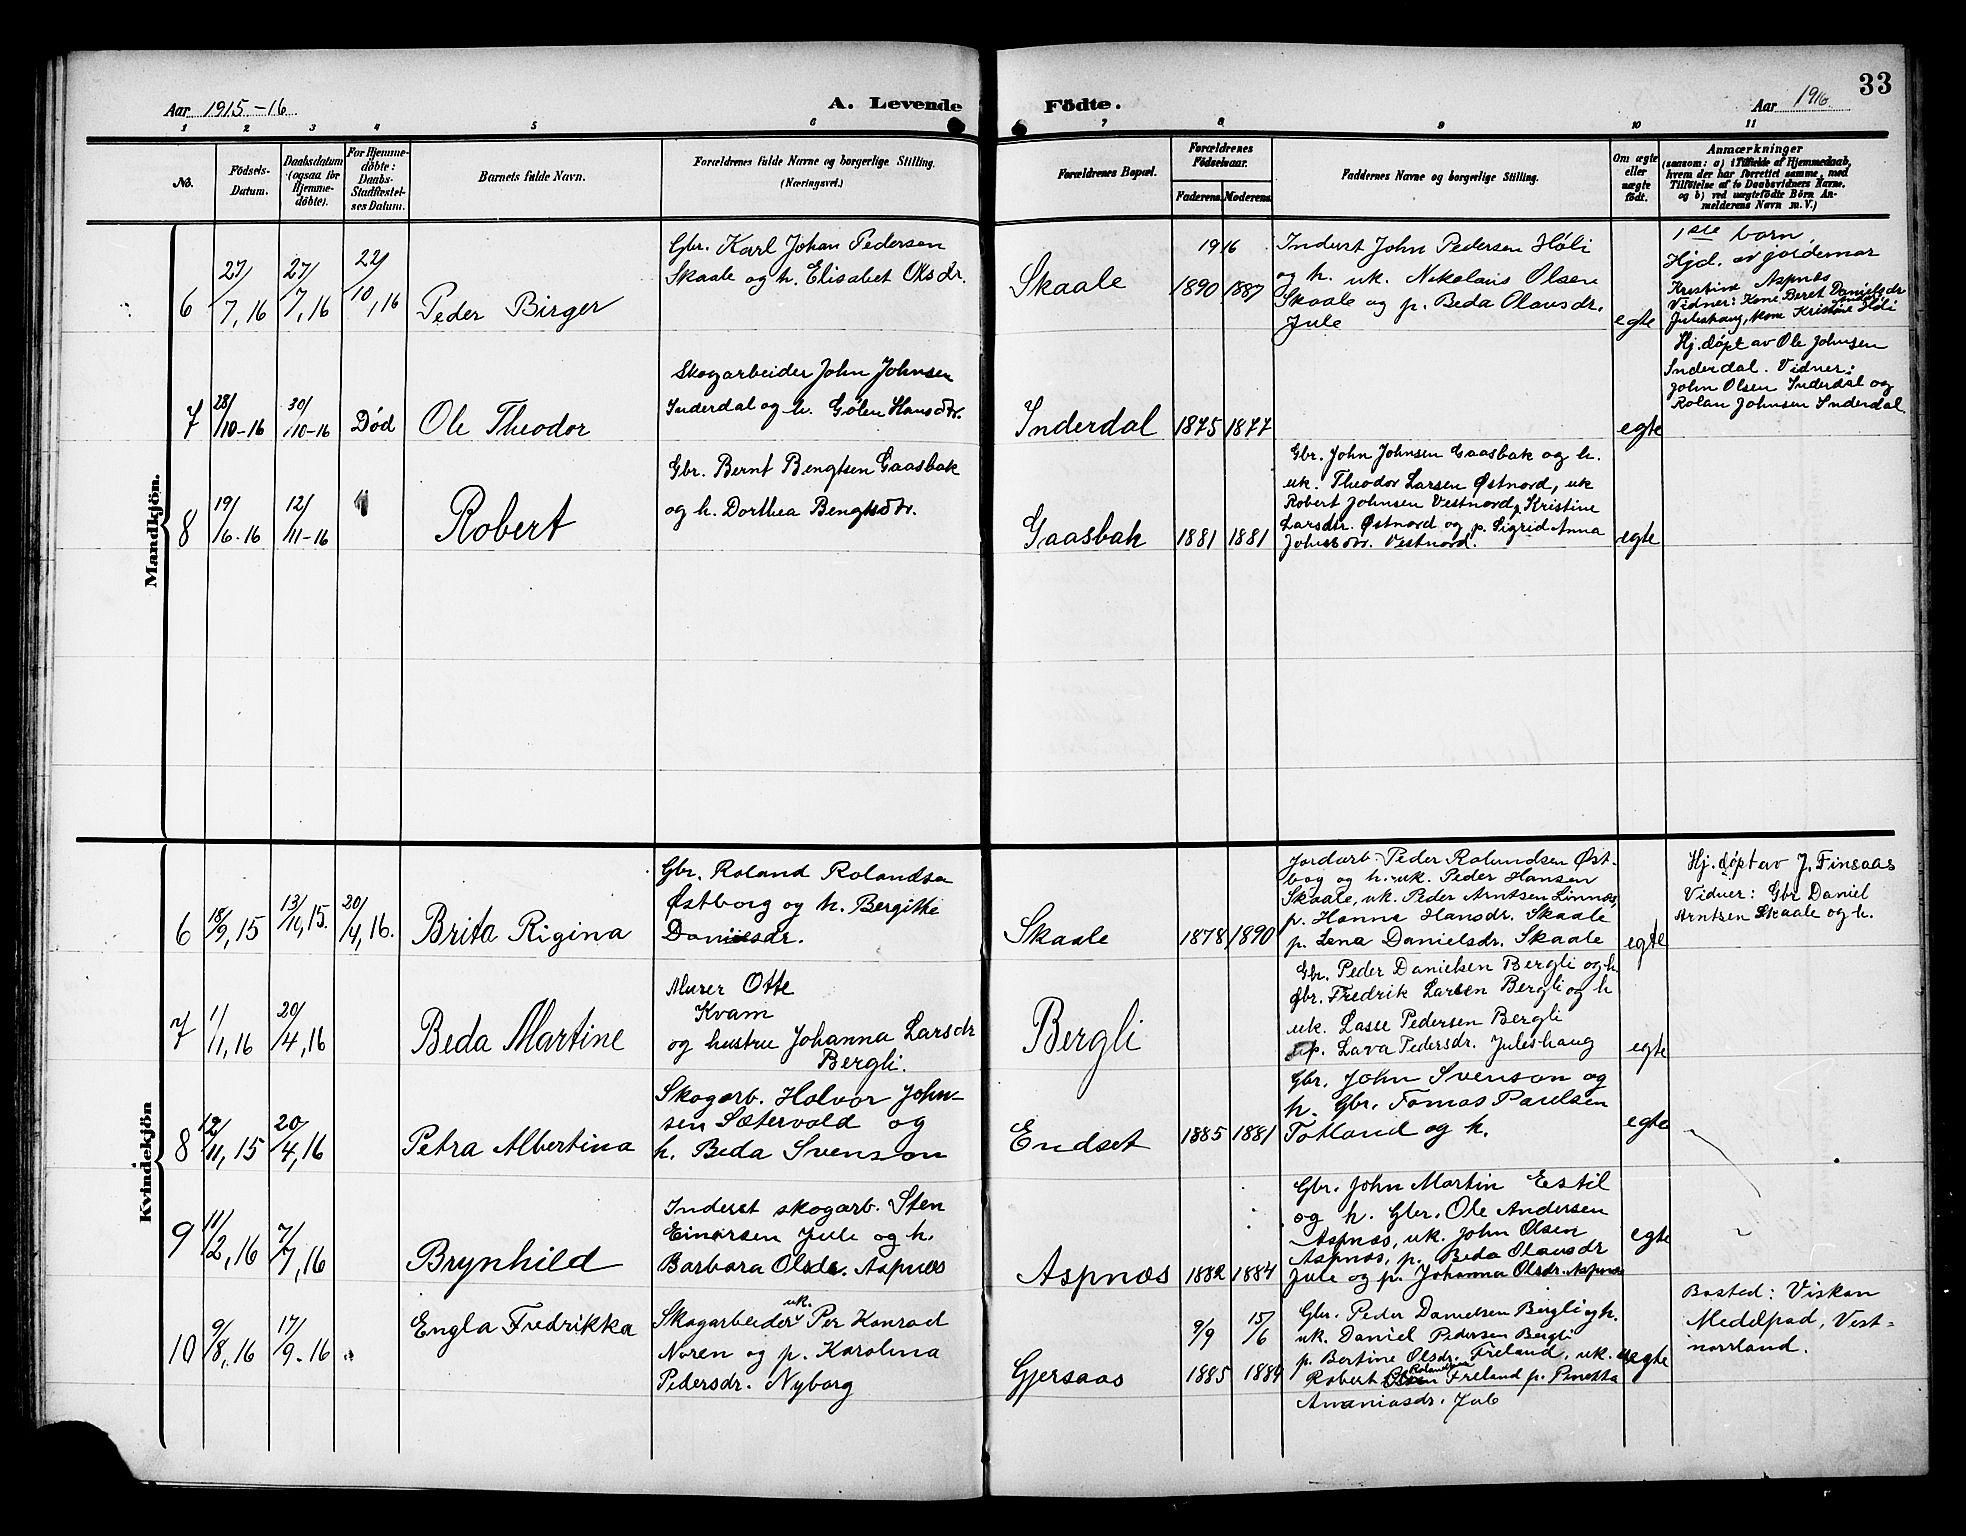 33
Aar 1915-16
A. Levende Födte.
Aar 1916
1 2 3 4 5 6 7 8 9 10 11
No.
Födsels-
Datum.
Daabsdatum
(ogsaa för
Hjemme-
döbte).
For Hjemme-
döbte:
Daabs-
Stadfæstel-
ses Datum.
Barnets fulde Navn.
Forældrenes fulde Navne og borgerlige Stilling.
(Næringsvei.)
Forældrenes Bopæl.
Forældrenes
Födselsaar.
Faderens. Moderens.
Faddernes Navne og borgerlige Stilling.
Om ægte
eller
uægte
födt.
Anmærkninger
(saasom: a) i Tilfælde af Hjemmedaab,
hvem der har forrettet samme, med
Tilföielse af to Daabsvidners Navne.
og b) ved uægtefödte Börn An-
melderens Navn m. V.)
Mandkjön.
6
27/7, 16
27/7, 16
22/10, 16
Peder Birger
Gbr. Karl Johan Pedersen
Skaale og h. Elisabet Olsdr.
Skaale
1916
1890 1887
Inderst John Pedersen Holi
og h. uk. Nikolaus Olsen
Skaale og p. Beda Olausdr.
Jule
egte
1ste barn
Hjd. av jordemor
Kristine Aspnes
Vidner: Kone Beret Danielsdr
Juleshaug, kone Kristine Holi
7
28/10-16
30/10-16
Død
Ole Theodor
Skogarbeider John Johnsen
Inderdal og h. Gølen Hansdtr.
Inderdal
1875 1877
egte
Hj. døpt av Ole Johnsen
Inderdal. Vidner:
John Olsen Inderdal og
Rolan Johnsen Inderdal
8
19/6-16
12/11-16
Robert
Gbr. Bernt Bengtsen Gaasbak
og h. Dorthea Bengtsdtr.
Gaasbak
1881 1881
Gbr. John Johnsen Gaasbak og h.
uk. Theodor Larsen Østnord, uk
Robert Johnsen Vestnord, Kristine
Larsdtr. Østnord og p. Sigrid Anna
Johnsdtr. Vestnord.
egte
Kvindekjön
6
18/9, 15
13/11, 15.
20/4, 16.
Brita Rigina
Gbr. Roland Rolandsen
Østborg og h. Bergithe
Danielsdr.
Skaale
1878 1890
Jordarb. Peder Rolandsen Øst-
bog og h. uk. Peder Hansen
Skaale, uk. Peder Arntsen Linnæs,
p. Hanna Hansdr. Skaale
p. Lena Danielsdr. Skaale
egte
Hj. døpt av J. Finsaas
Vidner: Gbr Daniel
Arntsen Skaale og h.
7
1/1, 16
20/4, 16
Beda Martine
Murer Otte
Kvam
og hustru Johanna Larsdr
Bergli.
Bergli
Gbr. Peder Danielsen Bergli og h.
Gbr. Fredrik Larsen Bergli og h
uk. Lasse Pedersen Bergli
p. Lava Pedersdr. Juleshaug
egte
8
12/11, 15
20/4, 16
Petra Albertina
Skogarb. Halvor John-
sen Sætervald og
h. Beda Svenson
Endset
1885 1881
Gbr. John Svenson og
h. Gbr. Tomas Paulsen
Totland og h.
egte
9
11/2, 16
7/7, 16
Brynhild
Inderst skogarb. Sten
Einarsen Jule og h.
Barbara Olsdr. Aspnæs
Aspnæs
1882 1884
Gbr. John Martin Estil
og h. Gbr. Ole Andersen
Aspnæs, uk. John Olsen
Aspnæs, p. Beda Olausdr
Jule og p. Johanna Olsdr. Aspnæs
egte
10
9/8, 16
17/9-16
Engla Fredrikka
Skogarbeider uk. Per Konrad
Noren og p. Karolina
Pedersdr. Nyborg
Gjersaas
9/9 15/6
1885 1884
Gbr. Peder Danielsen Bergli og h.
uk. Daniel Pedersen Bergli
p. Bertine Olsdr. Freland, uk.
Robert Rolandsen Freland p.
Ananiasdr. Jule
uegte
Bosted: Viskan
Medelpad, Vest-
norrland.